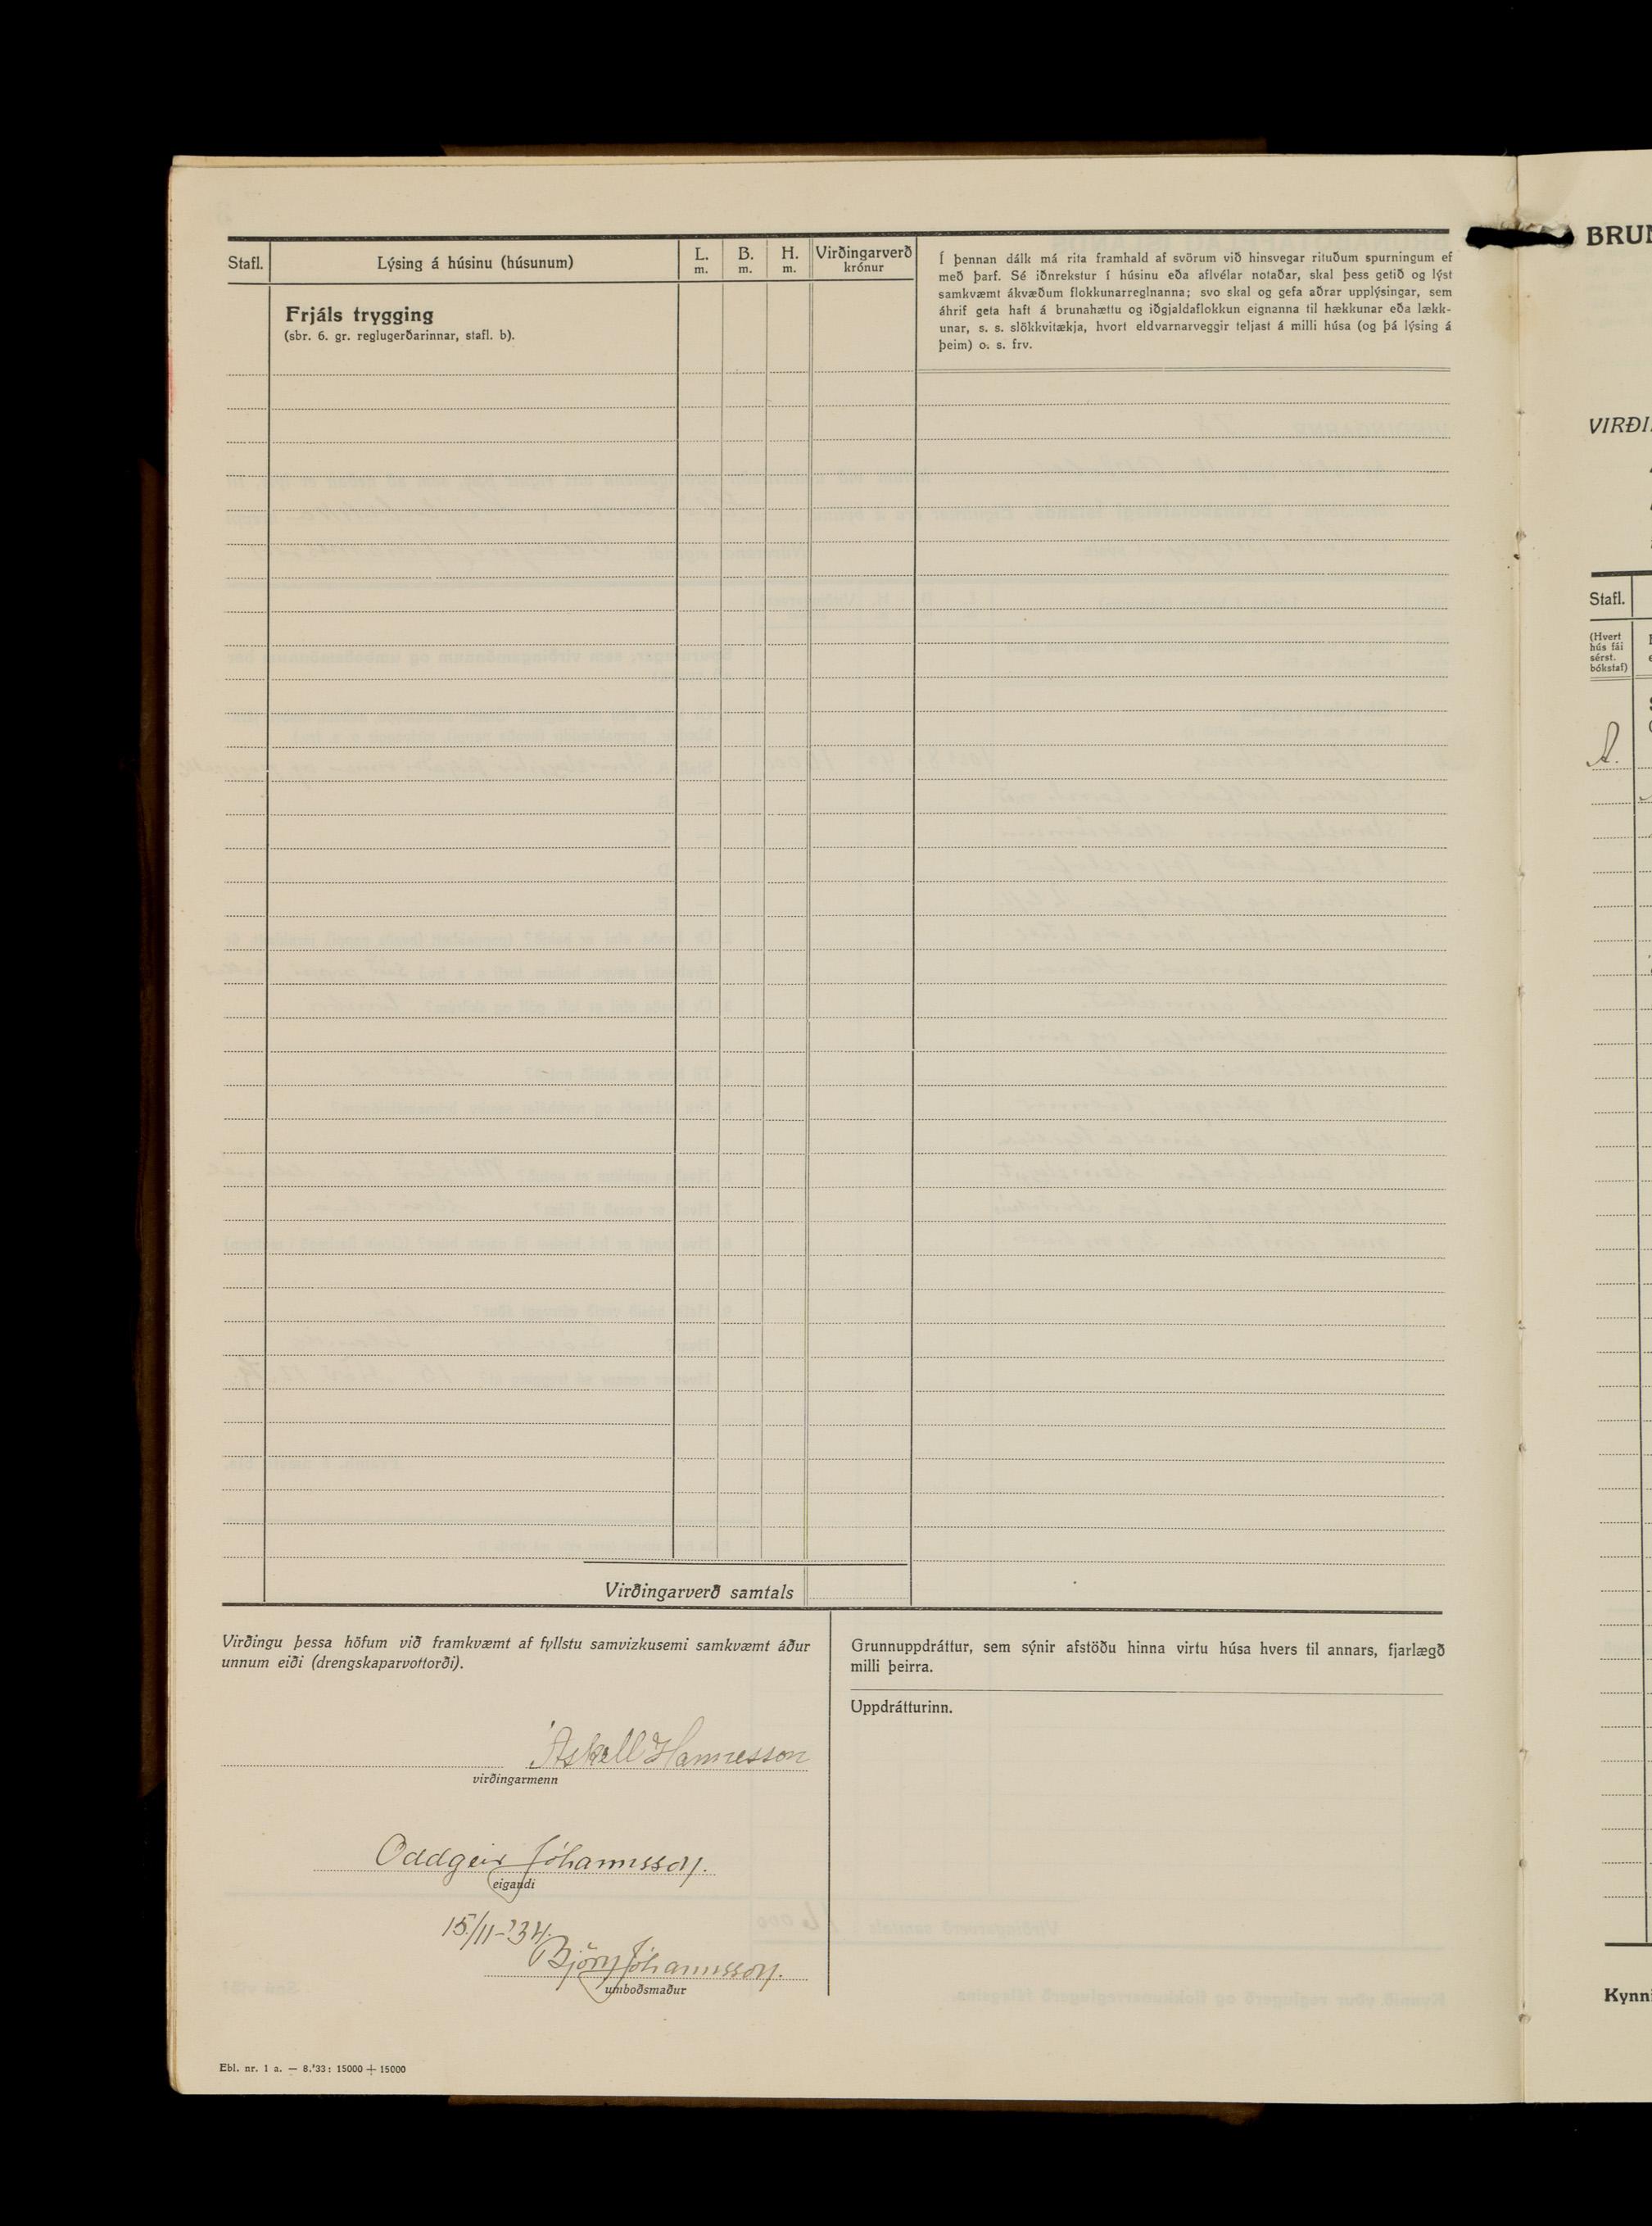 Stafl.
Lýsing á húsinu (húsunum)
L.
m.
B.
m.
H.
m.
Virðingarverð
krónur
Frjáls trygging
(sbr. 6. gr. reglugerðarinnar, stafl. b).
Í þennan dálk má rita framhald af svörum við hinsvegar rituðum spurningum ef
með þarf. Sé iðnrekstur í húsinu eða aflvélar notaðar, skal þess getið og lýst
samkvæmt ákvæðum flokkunarreglnanna; svo skal og gefa aðrar upplýsingar, sem
áhrif geta haft á brunahættu og iðgjaldaflokkun eignanna til hækkunar eða lækk-
unar, s. s. slökkvitækja, hvort eldvarnarveggir teljast á milli húsa (og þá lýsing á
þeim) o. s. frv.
Virðingarverð samtals
Virðingu þessa höfum við framkvæmt af fyllstu samvizkusemi samkvæmt áður
unnum eiði (drengskaparvottorði).
Áskell Hannesson
virðingarmenn
Oddgeir Jóhannsson.
eigandi
15/11-'34.
Björn Jóhannsson.
umboðsmaður
Grunnuppdráttur, sem sýnir afstöðu hinna virtu húsa hvers til annars, fjarlægð
milli þeirra.
Uppdrátturinn.
Ebl. nr. 1 a. — 8.'33: 15000 + 15000
BRUN
VIRÐI
Stafl.
(Hvert
hús fái
sérst.
bókstaf)
A.
Kynni